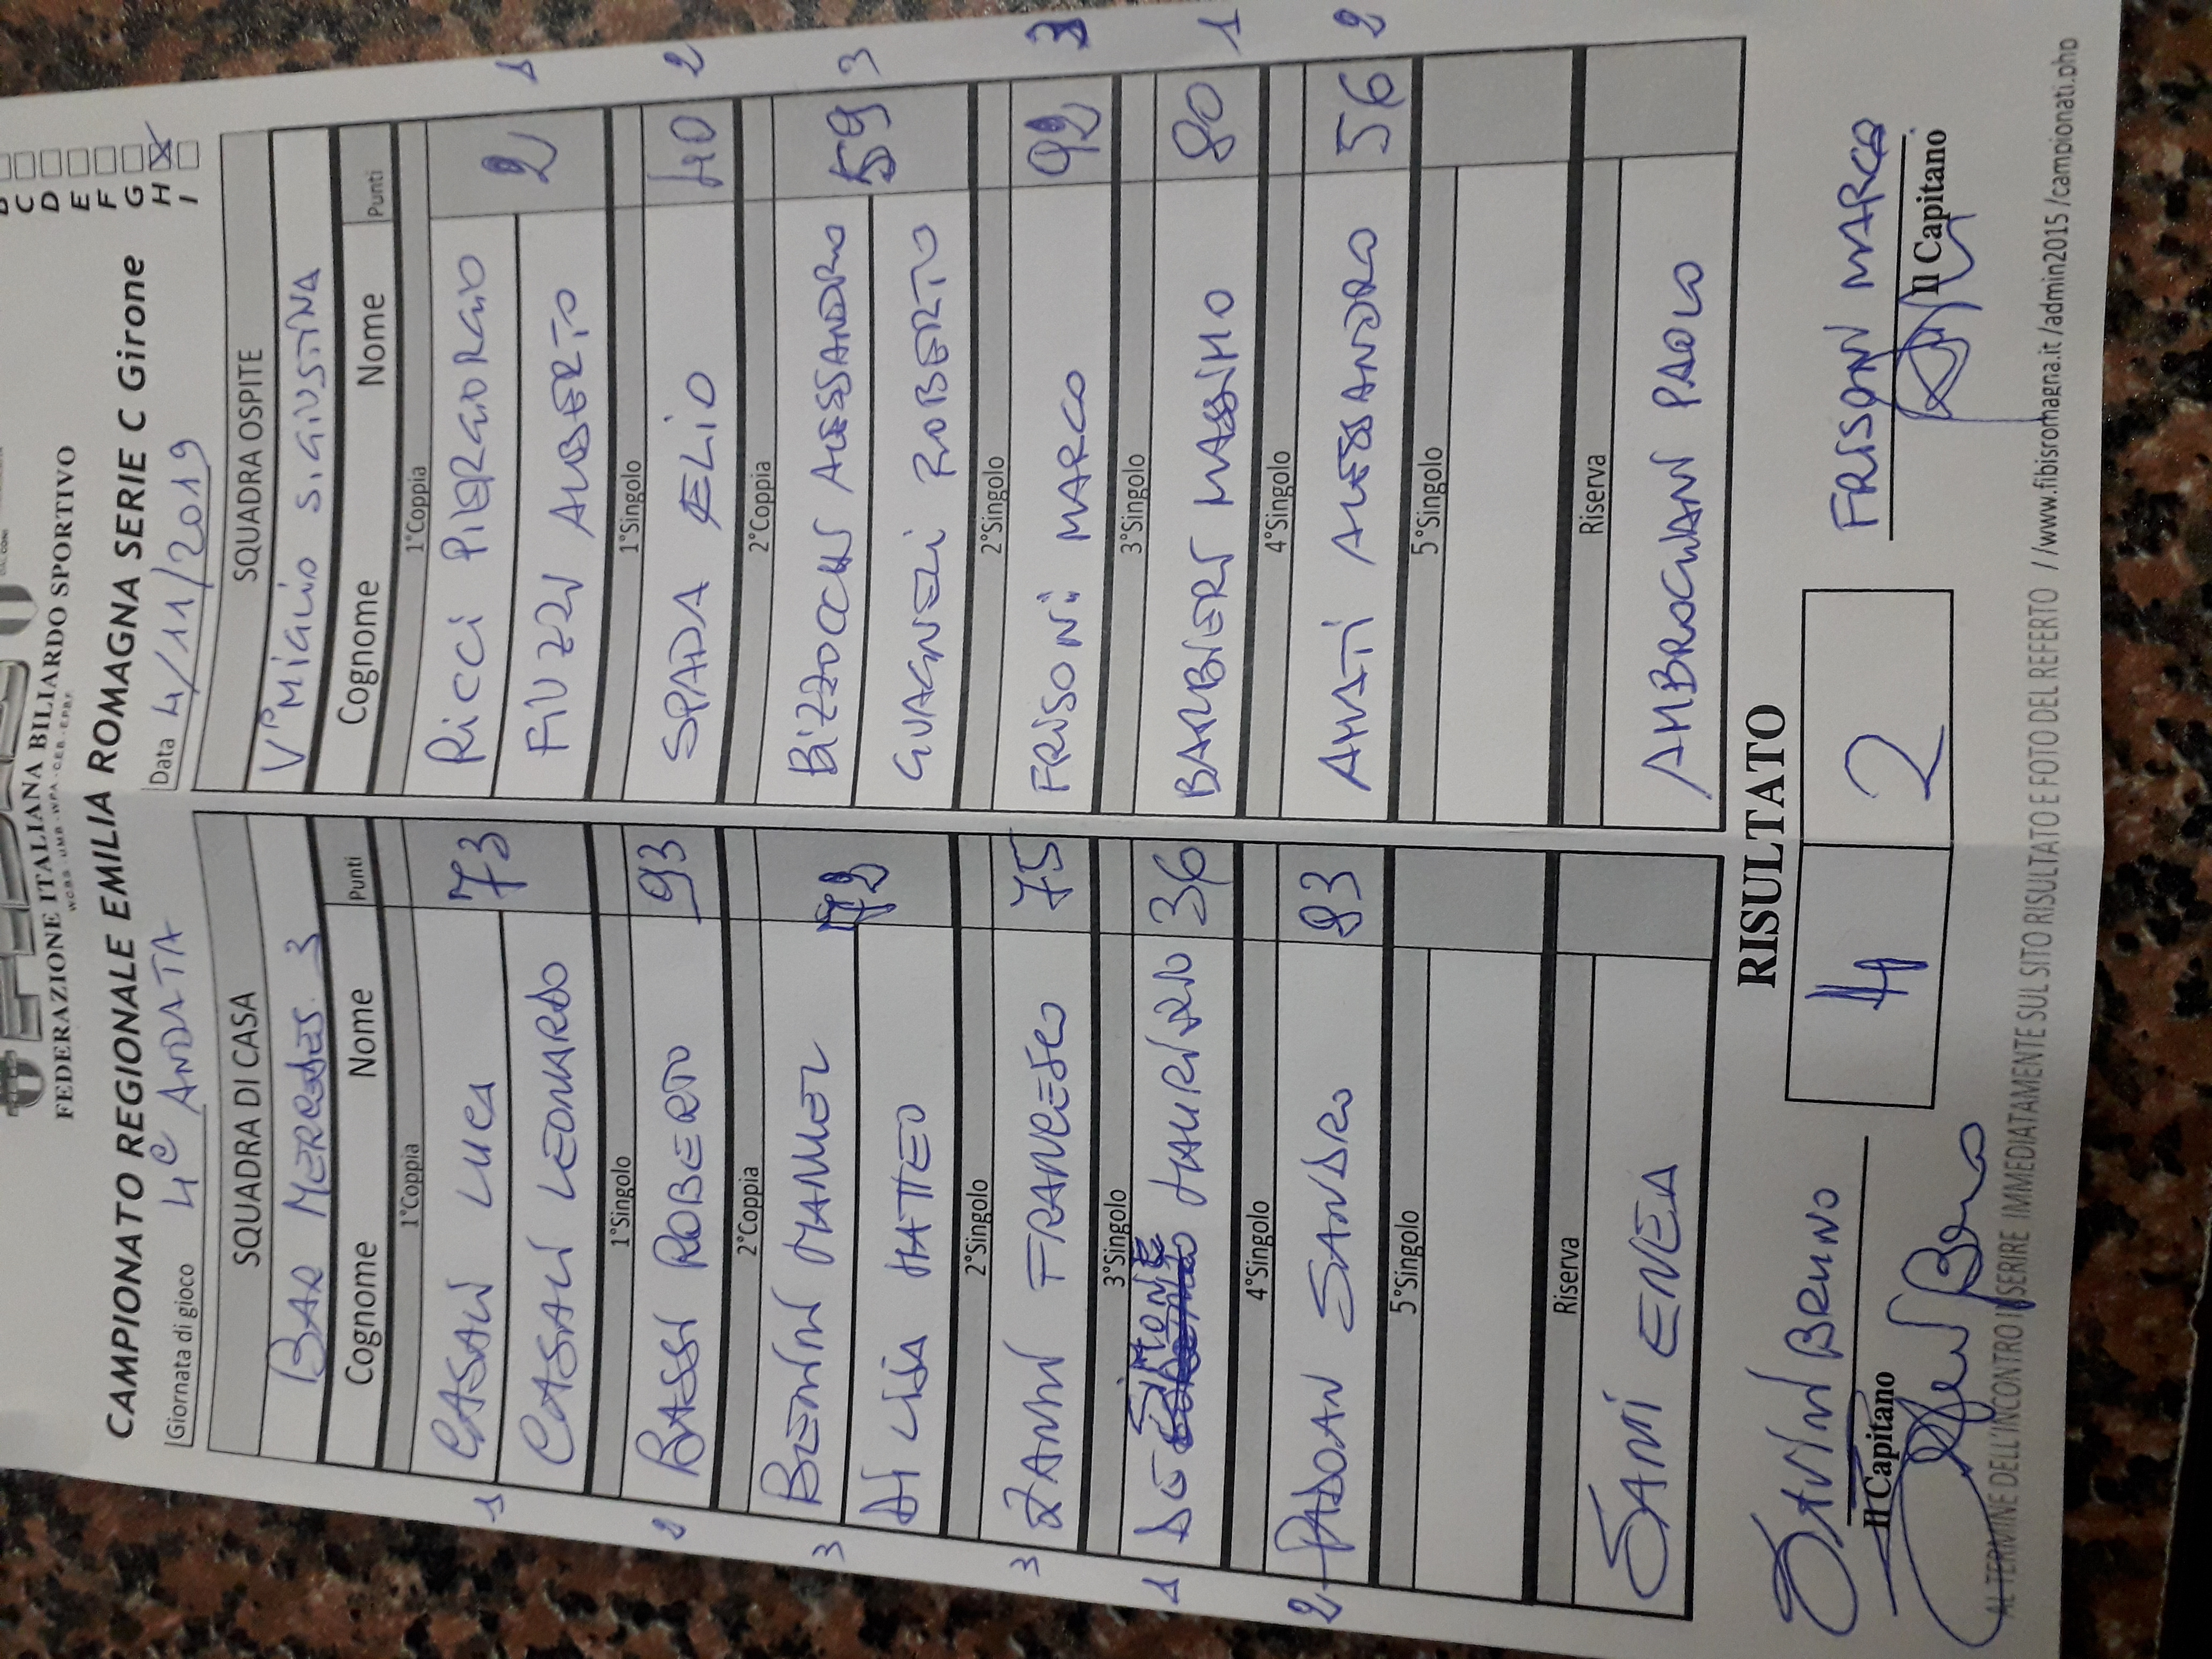 FEDERAZIONE ITALIANA BILIARDO SPORTIVO
CAMPIONATO REGIONALE EMILIA ROMAGNA SERIE C Girone
C
D
E
F
G
H
I
Giornata di gioco 4ª ANDATA Data 4/11/2019
SQUADRA DI CASA SQUADRA OSPITE
BAR MERCEDES 3 V°P° MIGLIO S.GIUSTINA
Cognome Nome Punti Cognome Nome Punti
1°Coppia 1°Coppia
1 CASALI LUCA 73 RICCI PIERGIORGIO 2 1
CASALI LEONARDO FIUZZI AUBERTO
1°Singolo 1°Singolo
2 BASSI ROBERTO 93 SPADA ELIO 40 2
2°Coppia 2°Coppia
3 MANUEL BIZZOCCHI ALESSANDRO 59 3
DI LISA MATTEO ROBERTO
2°Singolo 2°Singolo
3 ZANNI FRANCESCO 75 FRISONI MARCO 92 3
3°Singolo 3°Singolo
1 MAURIZIO 36 MASSIMO 80 1
4°Singolo 4°Singolo
2 PADOAN SANDRO 83 AMATI ALESSANDRO 56 2
5°Singolo 5°Singolo
Riserva Riserva
SAMI ENEA AMBROGIANI PAOLO
RISULTATO
SAVINI BRUNO 4 2 FRISONI MARCO
Il Capitano Il Capitano
AL TERMINE DELL'INCONTRO INSERIRE IMMEDIATAMENTE SUL SITO RISULTATO E FOTO DEL REFERTO //www.fibisromagna.it /admin2015 /campionati.php